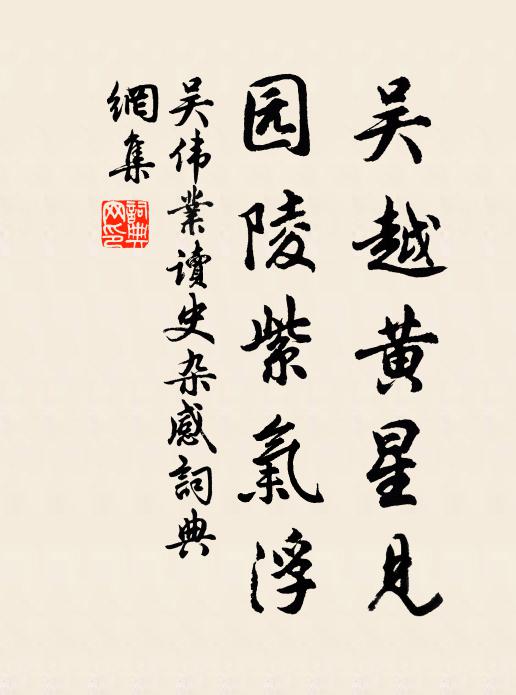 吴越黄星见
园陵紫氣浮
吴伟業讀史杂感詞典
網集
詞典网印